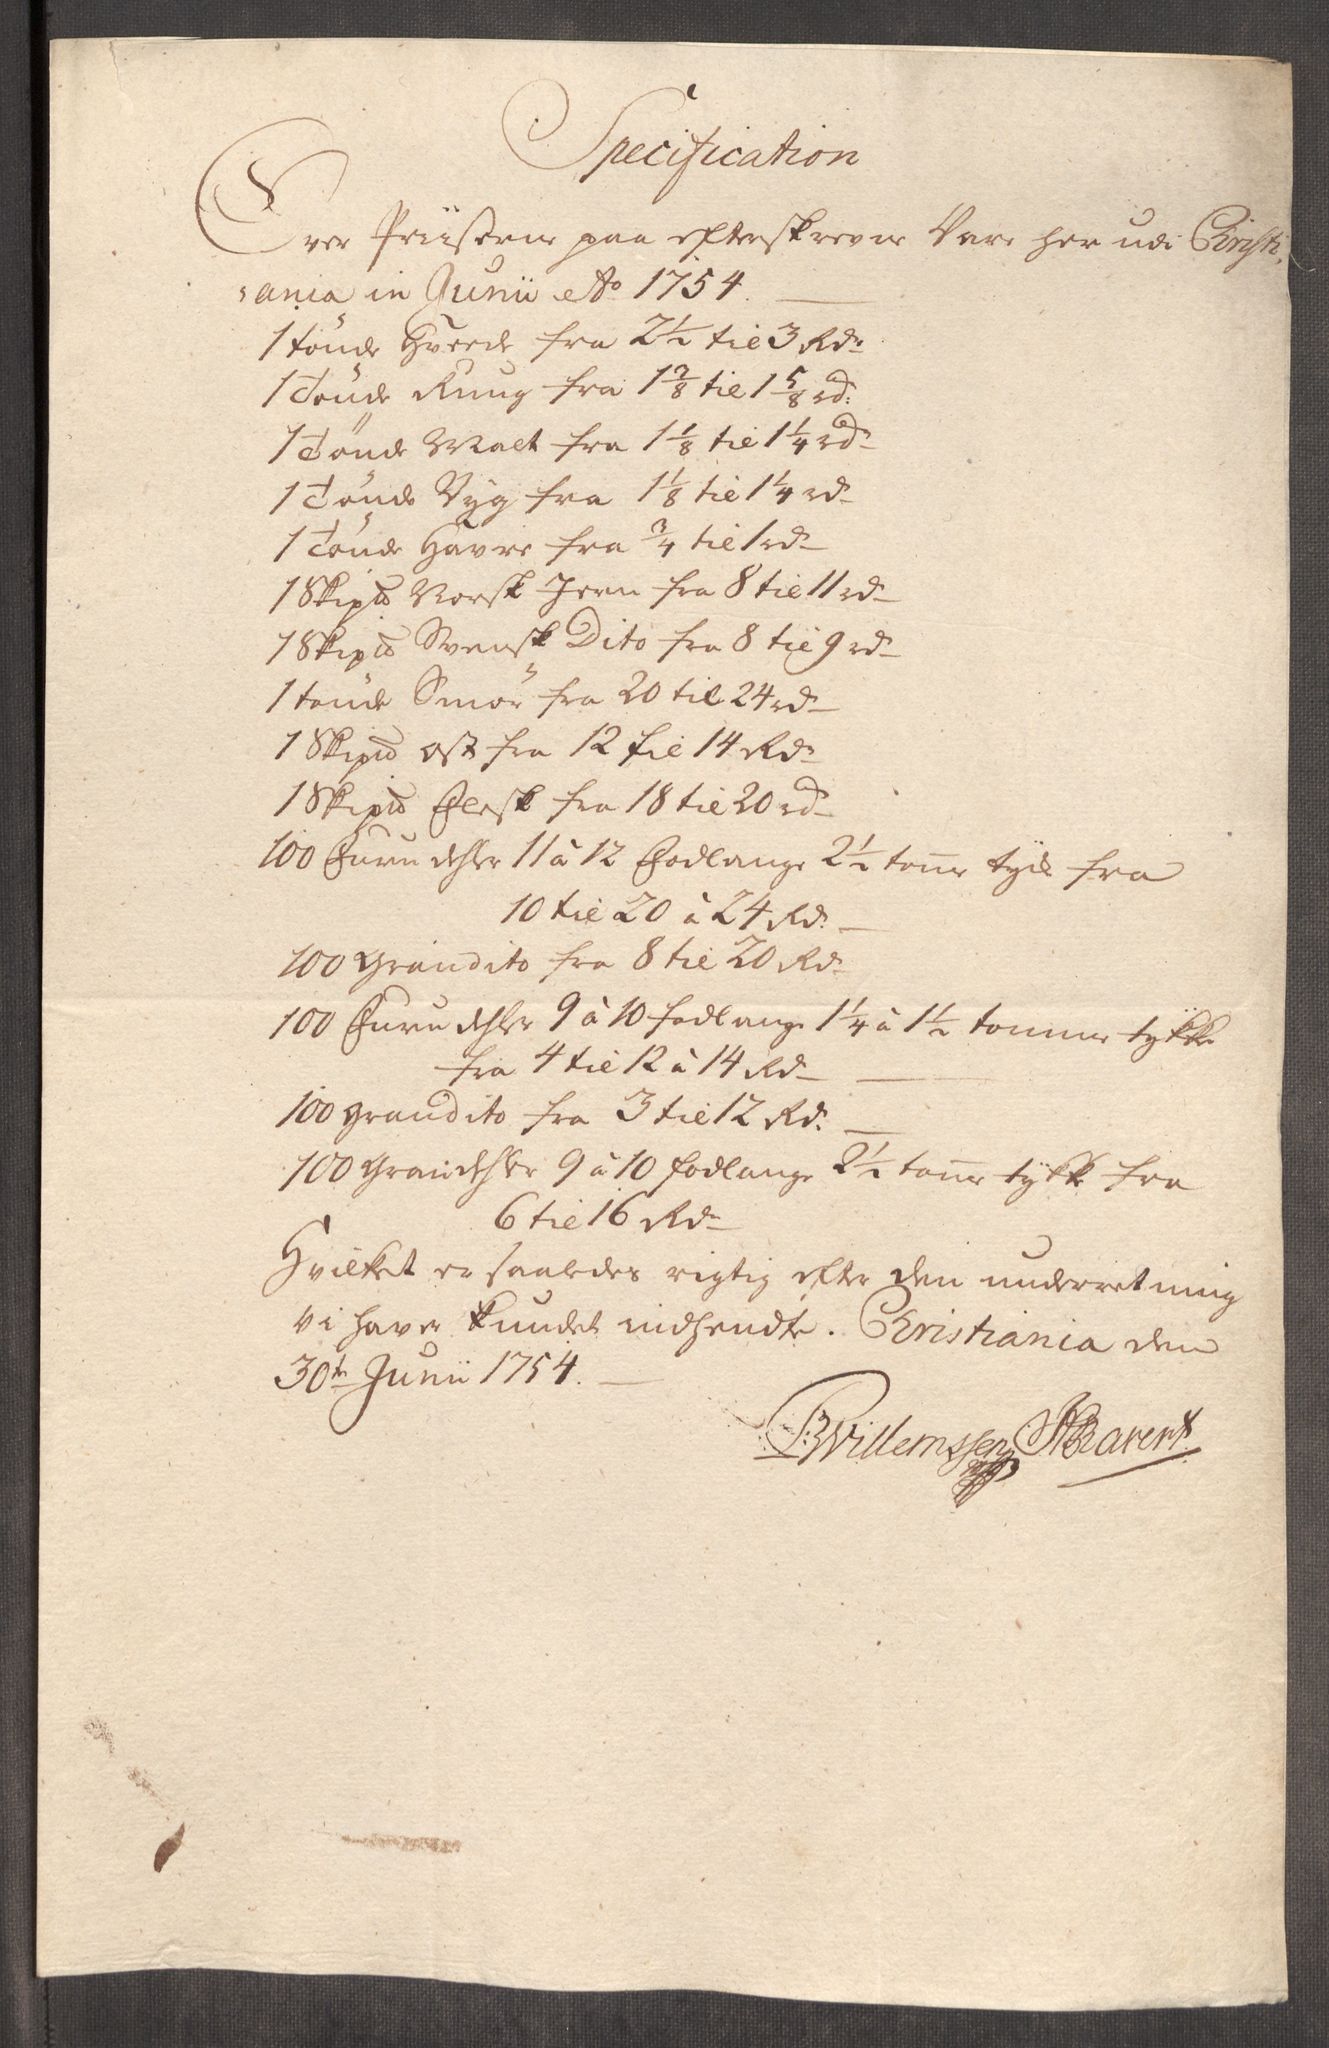 Specification
Over Priiserne paa efterskrevne Vare her udi Christi,
,ania in Junii Ao 1754.
1 tønde Hveede fra 2 1/2 til 3 Rdr
1 Tønde Rung fra 1 3/8 til 1 5/8 rdr
1 Tønde Malt fra 1 1/8 til 1 1/4 rdr
1 Tønde Byg fra 1 1/8 til 1 1/4 rdr
1 Tønde Havre fra 3/4 til 1 rdr
1 Skip℔ Norsk Jern fra 8 til 11 rdr
1 Skip℔ Svensk Dito fra 8 til 9 rdr
1 tønde Smør fra 20 til 24 rdr
1 Skip℔ Ost fra 12 til 14 Rdr
1 Skip℔ Flesk fra 18 til 20 rdr
100 Furu dehler 11 à 12 Fodlange 2 1/2 tom̄e tyk fra
10 til 20 à 24 Rdr.
100 Gran dito fra 8 til 20 Rdr
100 Furu dehler 9 à 10 fodlange 1 1/4 à 1 1/2 tomme tykke
fra 4 til 12 à 14 Rdr
100 gran dito fra 3 til 12 Rdr.
100 Gran dehler 9 à 10 fodlange 2 1/2 tom̄e tykk fra
6 til 16 Rdr
Hvilket er saaledes rigtig efter den underretning
vi haver kundet indhendte. Christiania den
30te Junii 1754.
BWillemssen Ravert